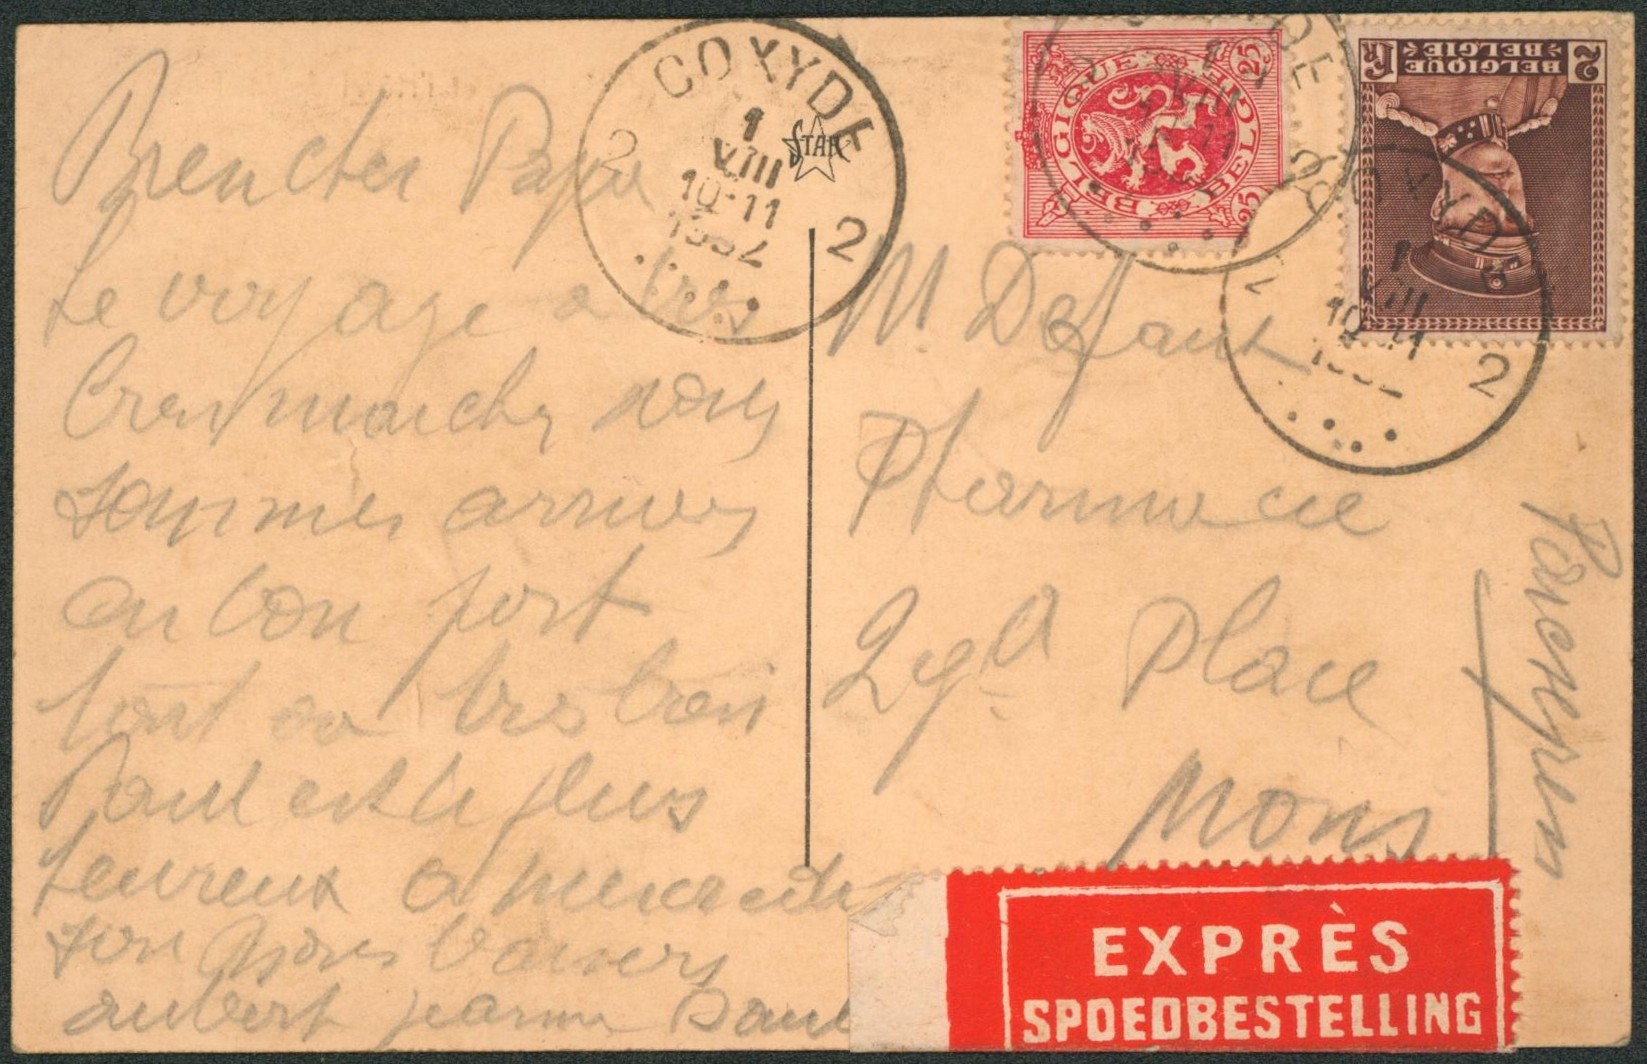 COXYDE
1
VIII
10-11
1932
2 2
STAR
BELGIQUE BELGIË
25 25
BELGIQUE BELGIË
2 Fr
COXYDE
1
VIII
10-11
2
Papa
Le voyage a très
bien marché nous
sommes arrivés
au bon port
tout va très bien
Paul est le plus
heureux
son bons baisers
aubert jeanne Paul
M Defaut
Pharmacie
2 gd Place
Mons
EXPRÈS
SPOEDBESTELLING